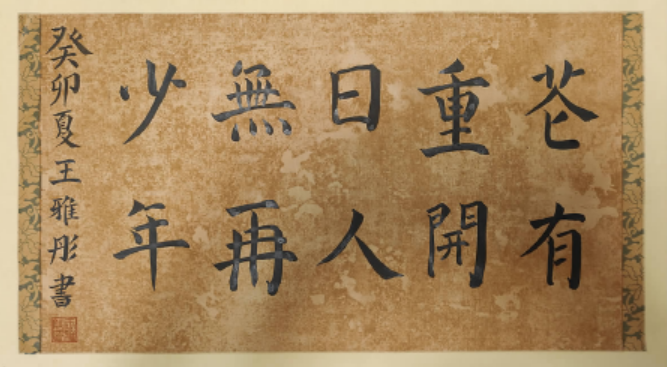 花有
重開
日人
無再
少年
癸卯夏王雅彤書